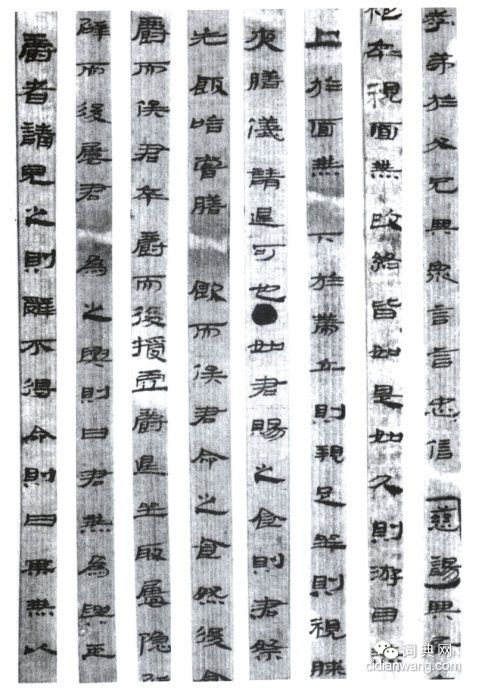 孝弟於父兄與衆言言忠信慈與
卒視面無改終皆如是如父則游目
上於面無下於帶立則視足坐則視膝
夜膳儀請退可也●如君賜之食則君祭
先飯嘗膳飲而俟君命之食然後食
爵而俟君卒爵而後授虛爵退坐取屨隱
辟而後屨君為之興則曰君無為興臣
爵者請見之則辭不得命則曰某無以
词典网
cidianwang.com